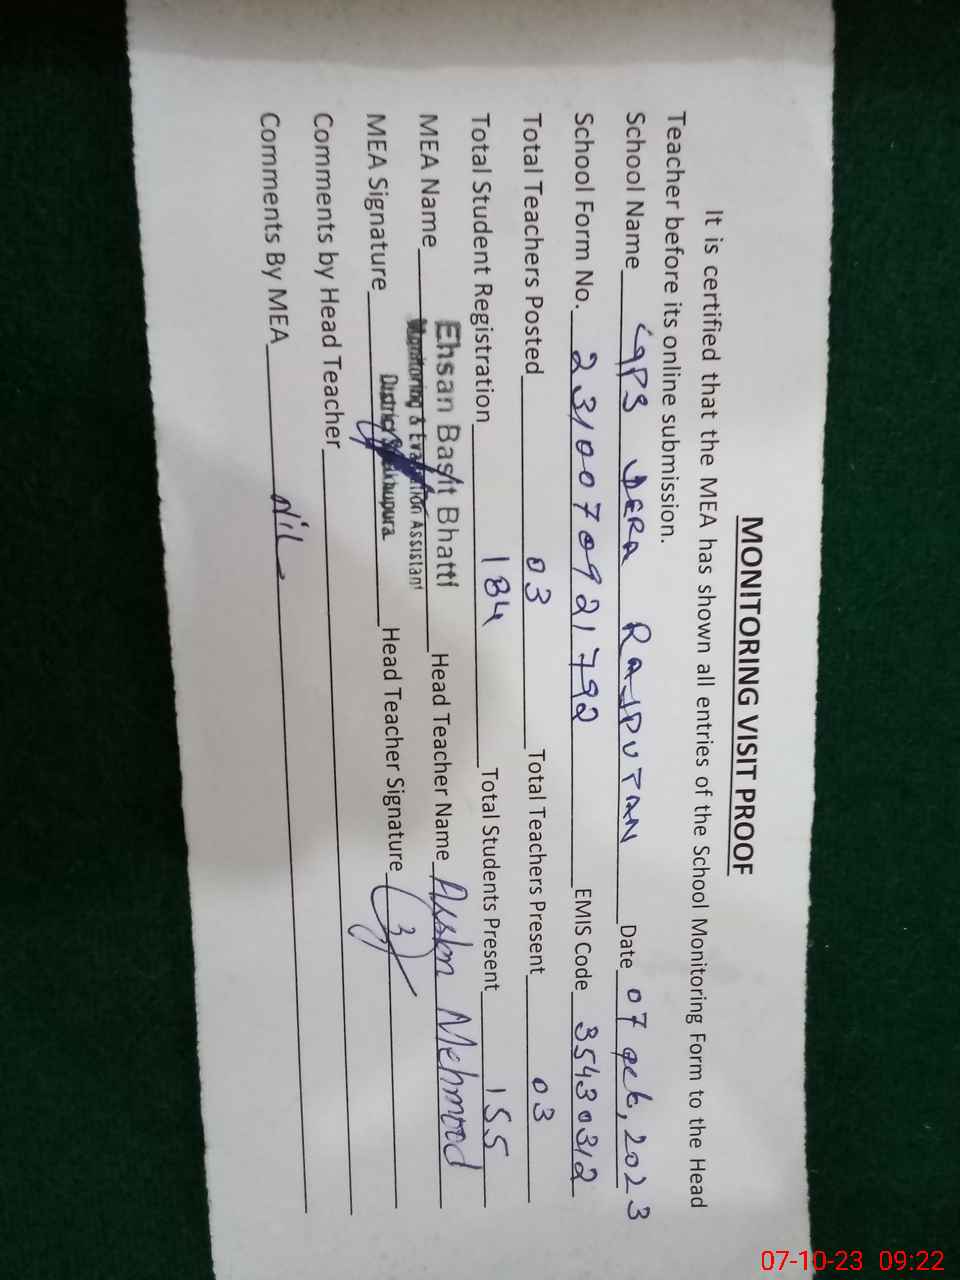 MONITORING VISIT PROOF
It is certified that the MEA has shown all entries of the School Monitoring Form to the Head
Teacher before its online submission.
School Name GPS DERA RAJPUTAN Date 07 Oct, 2023
School Form No. 23100709 21792 EMIS Code 35430312
Total Teachers Posted 03 Total Teachers Present 03
Total Student Registration 184 Total Students Present 155
MEA Name Ehsan Basit Bhatti Head Teacher Name Mehmood
Monitoring & Evaluation Assistant
MEA Signature District Sheikhupura Head Teacher Signature
Comments by Head Teacher
Comments By MEA Nil
07-10-23 09:22